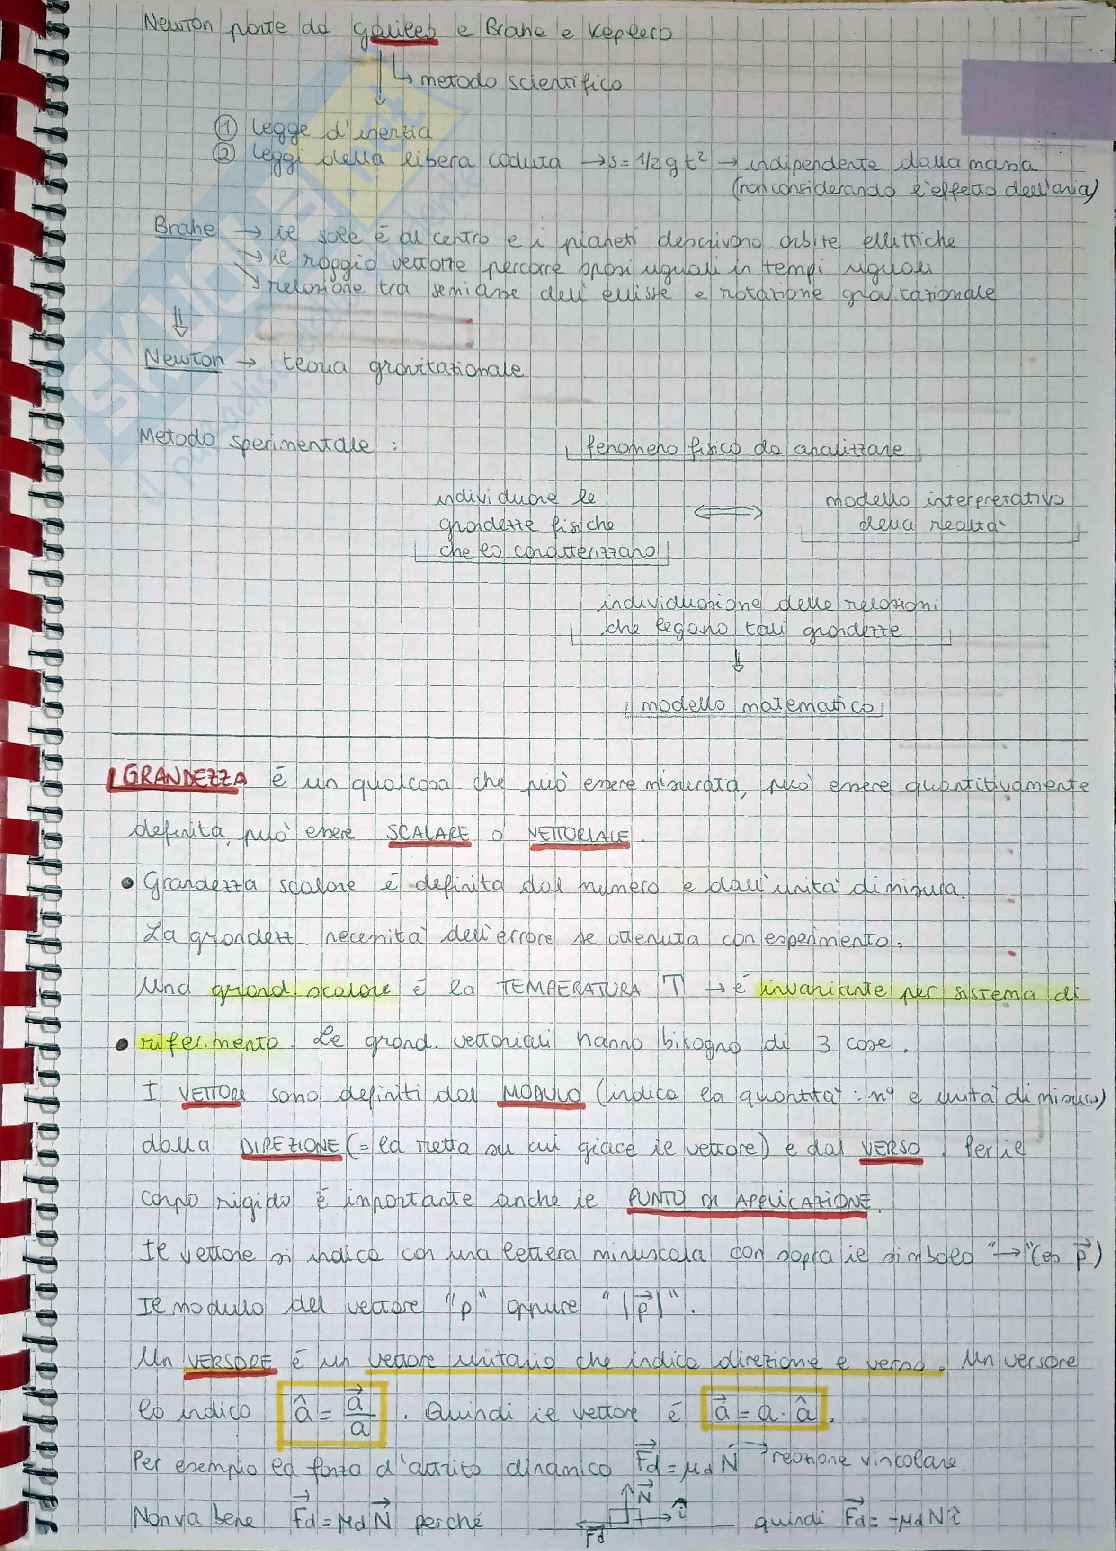 Newton parte da Galileo e Brahe e Keplero
↳ metodo scientifico
① legge d'inerzia
② leggi della libera caduta → s = 1/2 g t² → indipendente dalla massa
(non considerando l'effetto dell'aria)
Brahe → il sole è al centro e i pianeti descrivono orbite ellittiche
↘ il raggio vettore percorre spazi uguali in tempi uguali
↘ relazione tra semiasse dell'ellisse e rotazione gravitazionale
⇓
Newton → teoria gravitazionale
Metodo sperimentale :
fenomeno fisico da analizzare
individuare le
grandezze fisiche
che lo caratterizzano
⟺
modello interpretativo
della realtà
individuazione delle relazioni
che legano tali grandezze
⇓
modello matematico
GRANDEZZA è un qualcosa che può essere misurata, può essere quantitivamente
definita, può essere SCALARE o VETTORIALE.
• Grandezza scalare è definita dal numero e dall'unità di misura.
La grandezz necessita dell'errore se ottenuta con esperimento.
Una grand scalare è la TEMPERATURA T → è invariante per sistema di
• riferimento. Le grand. vettoriali hanno bisogno di 3 cose.
I VETTORI sono definiti dal MODULO (indica la quantità: n° e unità di misura)
dalla DIREZIONE (= la retta su cui giace il vettore) e dal VERSO. Per il
corpo rigido è importante anche il PUNTO DI APPLICAZIONE.
Il vettore si indica con una lettera minuscola con sopra il simbolo "→" (es p⃗)
Il modulo del vettore "p" oppure "|p⃗|".
Un VERSORE è un vettore unitario che indica direzione e verso. Un versore
lo indico â = a⃗/a . Quindi il vettore è a⃗ = a · â .
Per esempio la forza d'attrito dinamico F⃗d = μd N → reazione vincolare
Non va bene F⃗d = μd N⃗ perché N⃗ F⃗d î quindi F⃗d = -μd N î